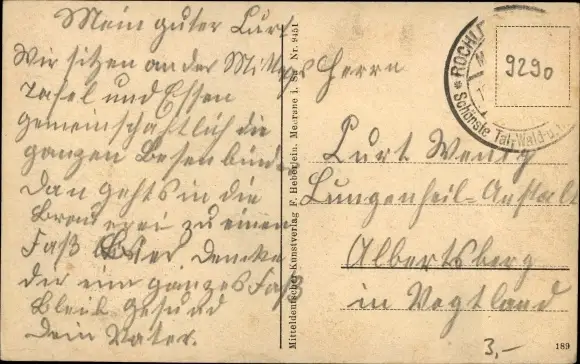 Mein guter Kurt
Wir sitzen an der Mittags
Tafel und Essen
gemeinschaftlich die
ganzen Besenbinder
Dan gehts in die
Brauerei zu einem
Faß Bier Dencke
dir ein ganzes Faß
Bleib Gesund
Dein Vater.
Mitteldeutscher Kunstverlag F. Heberlein, Meerane i. Sa. Nr. 9451
ROCHLI
Schönste Tal, Wald- u.
9290
Herrn
Kurt Wenig
Lungenheil-Anstalt
Albertsberg
in Vogtland
3,-
189